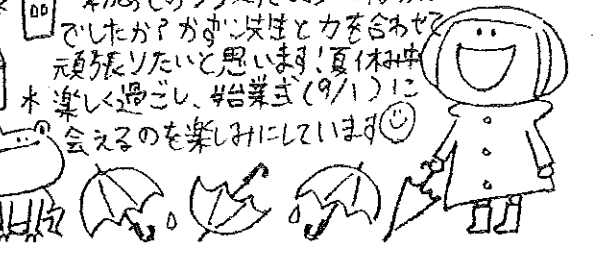 でしたか？かずﾞン先生と力を合わせて
頑張りたいと思います！夏休み中
楽しく過ごし、始業式（9/1）に
会えるのを楽しみにしています